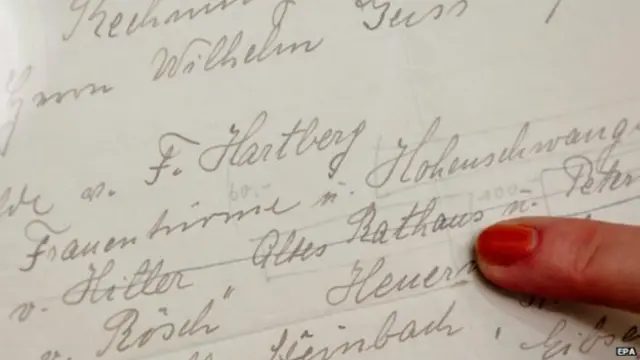 Rechnung Geiss
Herrn Wilhelm
v. F. Hartberg
Frauentürme u. Hohenschwang-
v. Hitler Altes Rathaus u. Peter
" Rösch" Heuer
Steinbach, Gibs
60.-
100
EPA